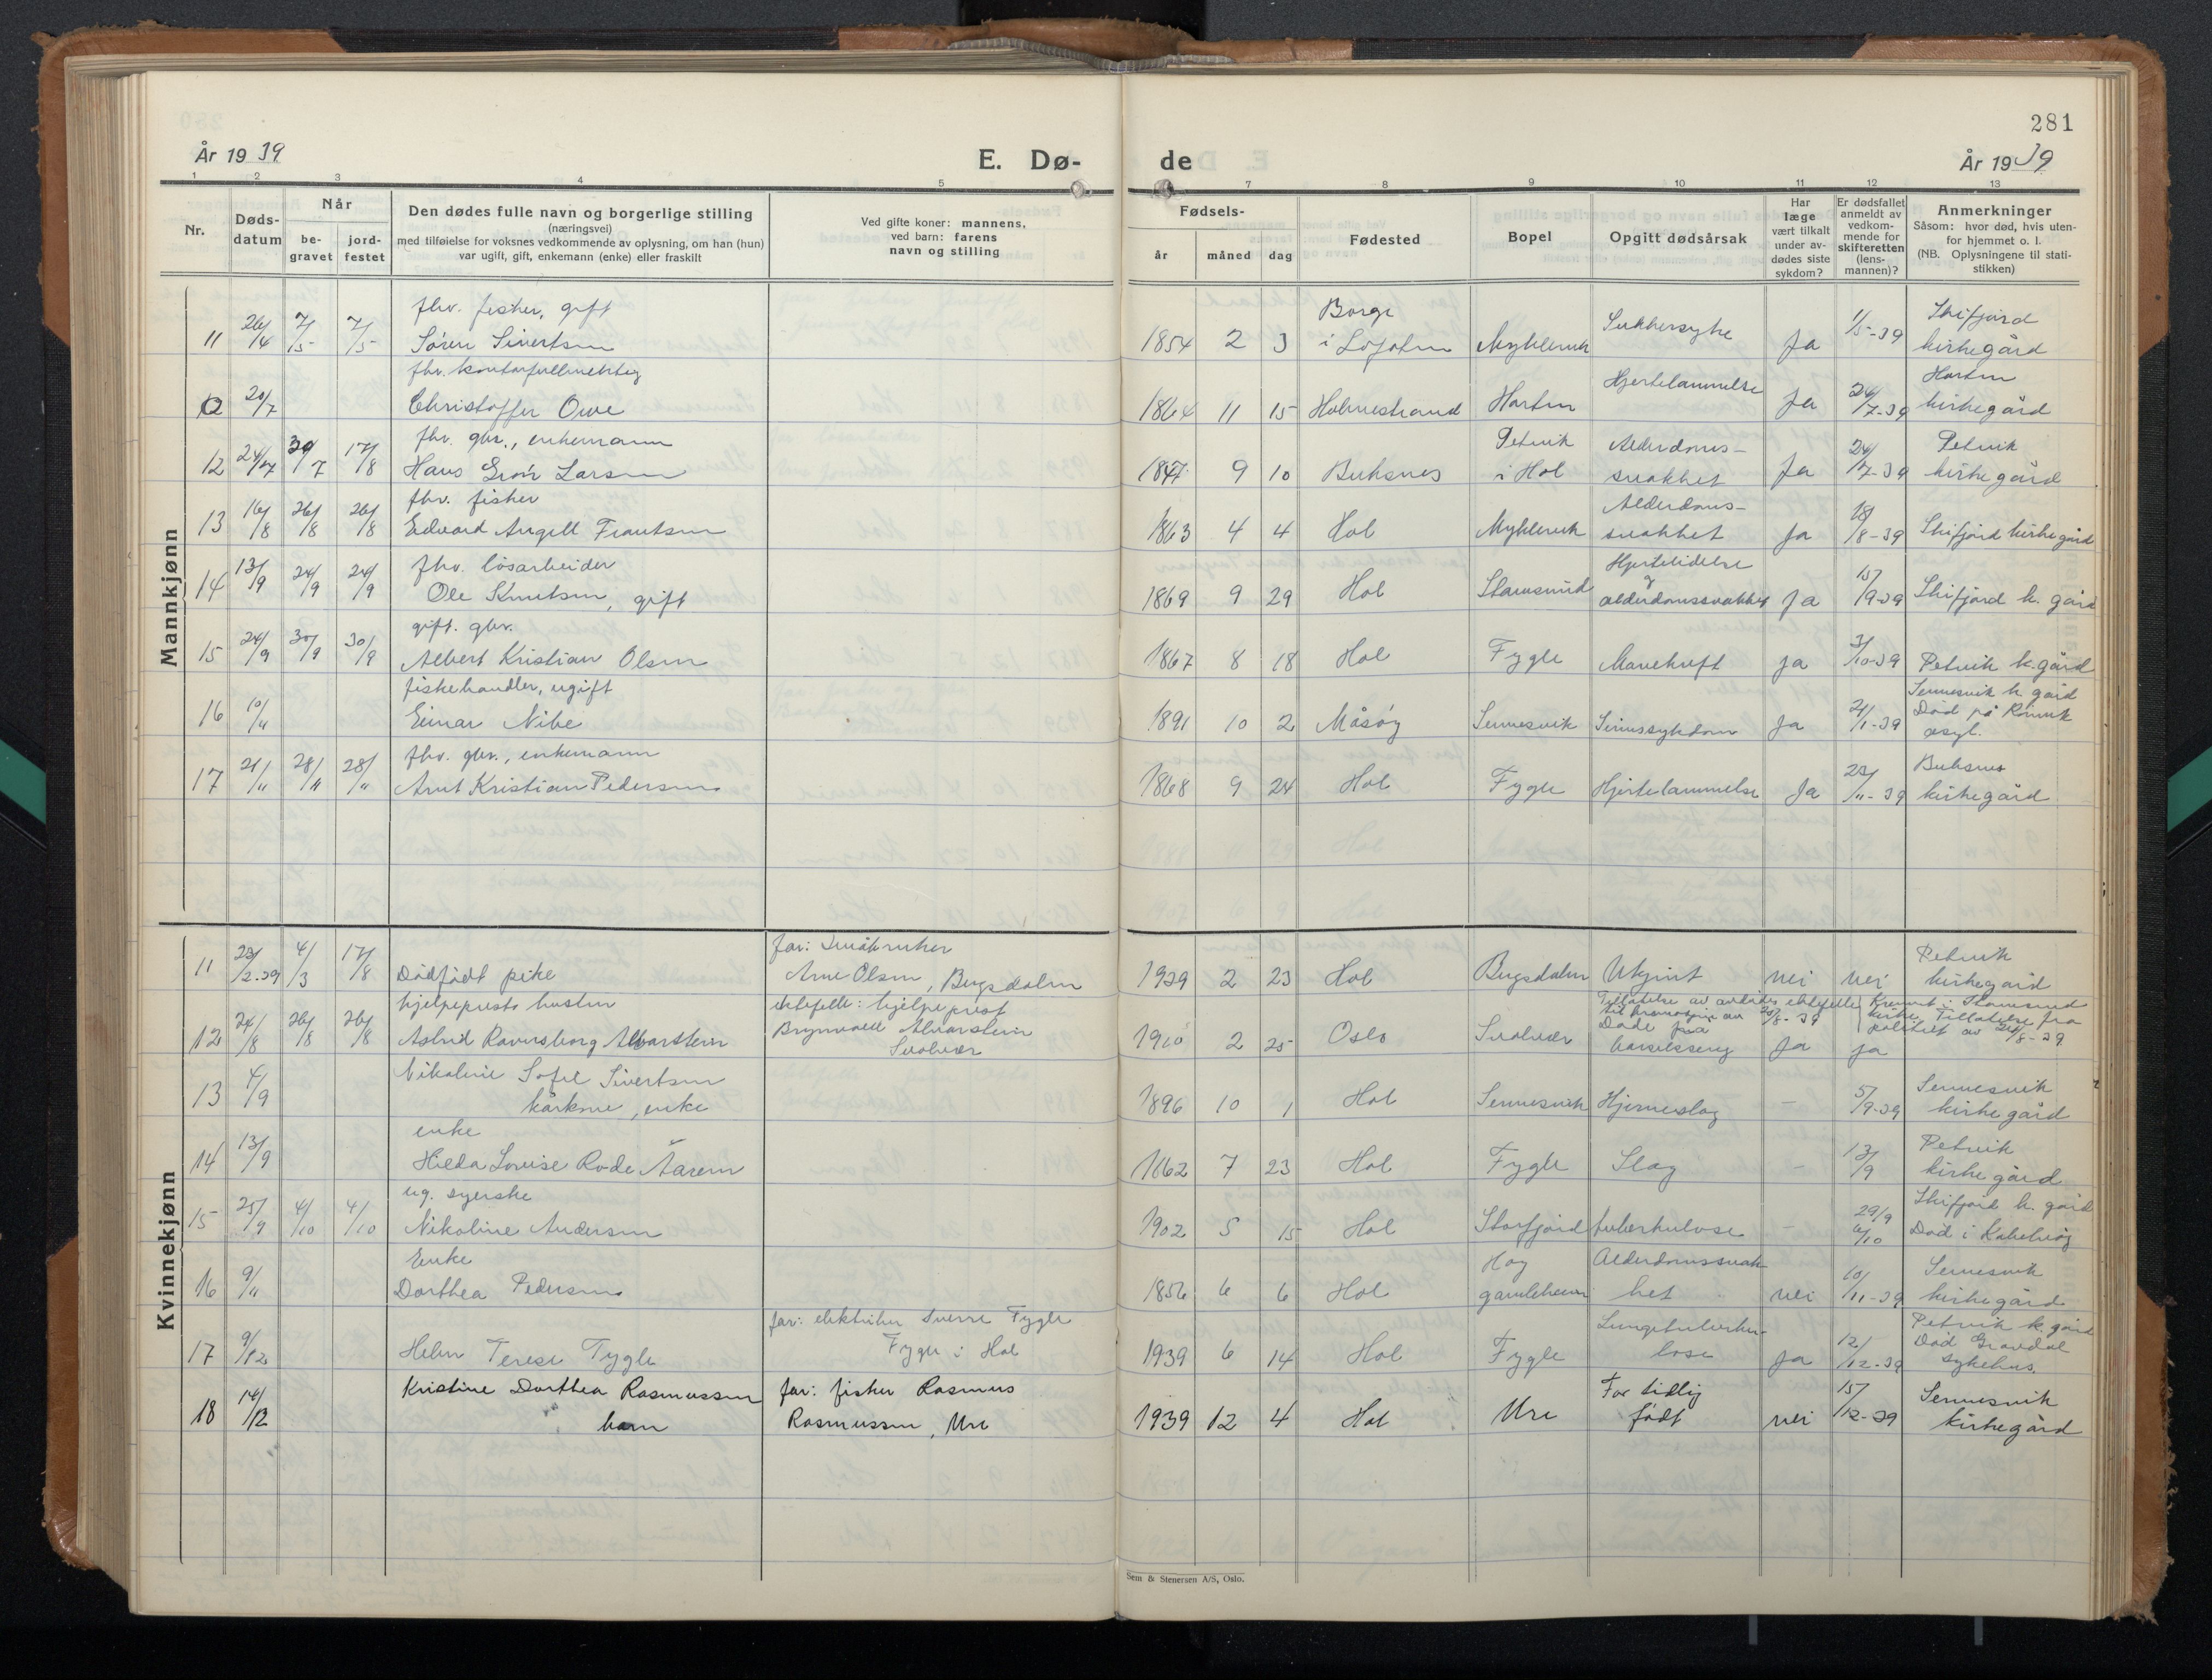 281
År 1939
E. Dø-
de
År 1939
1 2 3 4 5 7 8 9 10 11 12 13
Nr.
Døds-
datum
Når
be-
gravet
jord-
festet
Den dødes fulle navn og borgerlige stilling
(næringsvei)
med tilføielse for voksnes vedkommende av oplysning, om han (hun)
var ugift, gift, enkemann (enke) eller fraskilt
Ved gifte koner: mannens,
ved barn: farens
navn og stilling
Fødsels-
år måned dag
Fødested
Bopel
Opgitt dødsårsak
Har
læge
vært tilkalt
under av-
dødes siste
sykdom?
Er dødsfallet
anmeldt av
vedkom-
mende for
skifteretten
(lens-
mannen)?
Anmerkninger
Såsom: hvor død, hvis uten-
for hjemmet o. l.
(NB. Oplysningene til stati-
stikken)
Mannkjønn
fhv. fisker, gift Borge Skifjord
11 26/4 7/5 7/5 Sören Sivertsen 1854 2 3 i Lofoten Myklevik Sukkersyke Ja 11/5-39 kirkegård
fhv. kontorfullmektig Horten
20/7 Christoffer Owe 1864 11 15 Holmestrand Horten Hjertelammelse Ja 24/7-39 kirkegård
fhv. gbr., enkemann Petvik Alderdoms- Petvik
12 24/7 30/7 17/8 Hans Grön Larsen 1847 9 10 Buksnes i Hol svakhet Ja 24/7-39 kirkegård
fhv. fisker Alderdoms-
13 16/8 26/8 26/8 Edvard Angell Frantsen 1863 4 4 Hol Myklevik svakhet Ja 18/8-39 Skifjord kirkegård
fhv. lösarbeider Hjertelidelse
14 13/9 24/9 24/9 Ole Knutsen, gift 1869 9 29 Hol Stamsund og alderdomssvakhet Ja 15/9-39 Skifjord k. gård
gift. gbr.
15 24/9 30/9 30/9 Albert Kristian Olsen 1867 8 18 Hol Fygle Mavekreft ja 3/10-39 Petvik k.gård
fiskehandler, ugift Sennesvik k gård
16 10/11 Einar Nibe 1891 10 2 Måsöy Sennesvik Sinnssykdom Ja 21/11-39 Död på Rönvik
asyl.
fhv. gbr., enkemann Buksnes
17 21/11 28/11 28/11 Arnt Kristian Pedersen 1868 9 24 Hol Fygle Hjertelammelse Ja 23/11-39 kirkegård
Kvinnekjønn
far: Småbruker Petvik
11 23/2-39 4/3 17/8 Dödfödt pike Arne Olsen, Bugsdalen 1939 2 23 Hol Bugsdalen Ukjent nei nei kirkegård
hjelpeprests hustru ektefelle: hjelpeprest Tillatelse av avdödes ektefelle Kremert i Stamsund
12 24/8 26/8 26/8 Astrid Ravnsborg Alvarstein Brynvald Alvarstein Svolvær 1910 2 25 Oslo Svolvær Döde fra barselseng Ja ja kirke. Tillatelse fra
politiet av 26/8-39
Nikoline Sofie Sivertsen Sennesvik
13 4/9 kårkone, enke 1896 10 1 Hol Sennesvik Hjerneslag - 5/9-39 kirkegård
enke Petvik
14 13/9 Hilda Lovise Rode Aaren 1862 7 23 Hol Fygle Slag - 13/9 kirkegård
ug. syerske Skifjord k. gård
15 25/9 4/10 4/10 Nikoline Andersen 1902 5 15 Hol Storfjord tuberkulose - 29/9 6/10 Död i Kabelvåg
Enke Hag Alderdomssvak- Sennesvik
16 9/11 Dorthea Pedersen 1856 6 6 Hol gamleheim het nei 10/11-39 kirkegård
far: elektriker Sverre Fygle Lungetuberku- Petvik k. gård
17 9/12 Helen Terese Fygle Fygle i Hol 1939 6 14 Hol Fygle lose ja 12/12-39 Död Gravdal
sykehus.
Kristine Dorthea Rasmussen far: fisker Rasmus For tidlig Sennesvik
18 14/12 barn Rasmussen, Ure 1939 12 4 Hol Ure födt nei 15/12-39 kirkegård
Sem & Stenersen A/S, Oslo.